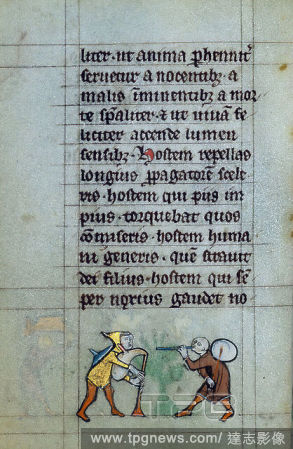 liter · ut anima phennit᷑
seruetur a nocentibꝫ · a
malis iminentibꝫ a mor
te sp̄aliter · ⁊ ut uiuā fe
liciter accende lumen
sensibꝫ · hostem repellas
longius ꝓpagatorē scele
ris · hostem qui pius im
pius · torquebat quos
cōmiseris · hostem huma
ni generis · quē strauit
dei filius · hostem qui sē
per noxius gaudet no
TPG
www.tpgnews.com / 達志影像